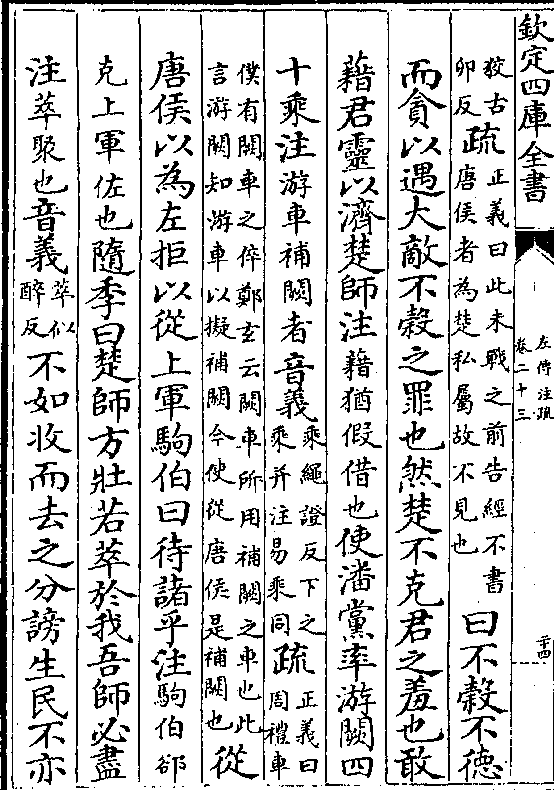 欽定四庫全書
左傳注疏
卷二十三
二十四
狡古
卯反
疏
正義曰此未戰之前告經不書
唐侯者為楚私屬故不見也
曰不穀不德
而貪以遇大敵不穀之罪也然楚不克君之羞也敢
藉君靈以濟楚師注藉猶假借也使潘黨率游闕四
十乘注游車補闕者音義
乘繩證反下之
乘并注易乘同
疏
正義曰
周禮車
僕有闕車之倅鄭玄云闕車所用補闕之車也此
言游闕知游車以擬補闕今使從唐侯是補闕也
從
唐侯以為左拒以從上軍駒伯曰待諸乎注駒伯郤
克上軍佐也隨季曰楚師方壯若萃於我吾師必盡
注萃聚也音義
萃似
醉反
不如收而去之分謗生民不亦